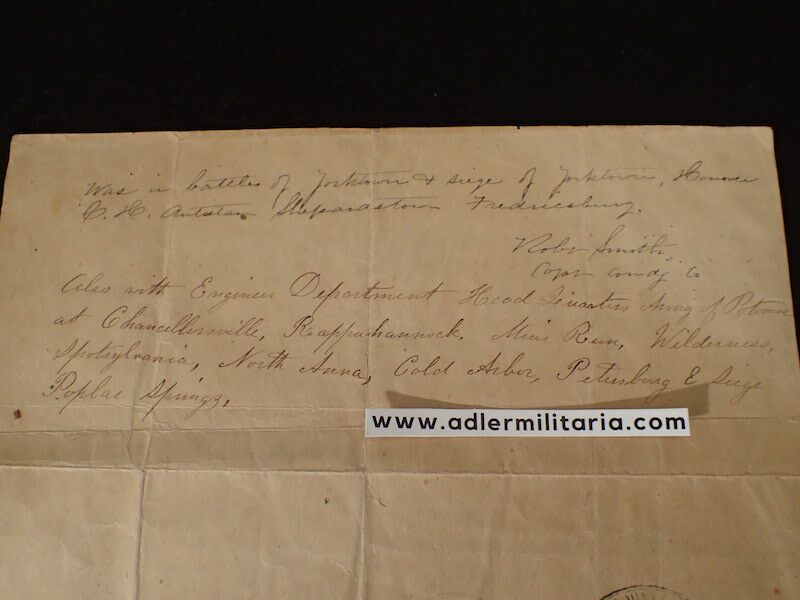 Was in battles of Yorktown & siege of Yorktown, Hanover
C. H. Antitam Shepardstown Fredricsburg.
Robt Smith
Capt comdg Co
Also with Engineer Department Head Quarters Army of Potomac
at Chancellersville, Reappahannock, Mine Run, Wilderness,
Spotsylvania, North Anna, Cold Arbor, Petersburg & Siege
Poplar Springs,
www.adlermilitaria.com